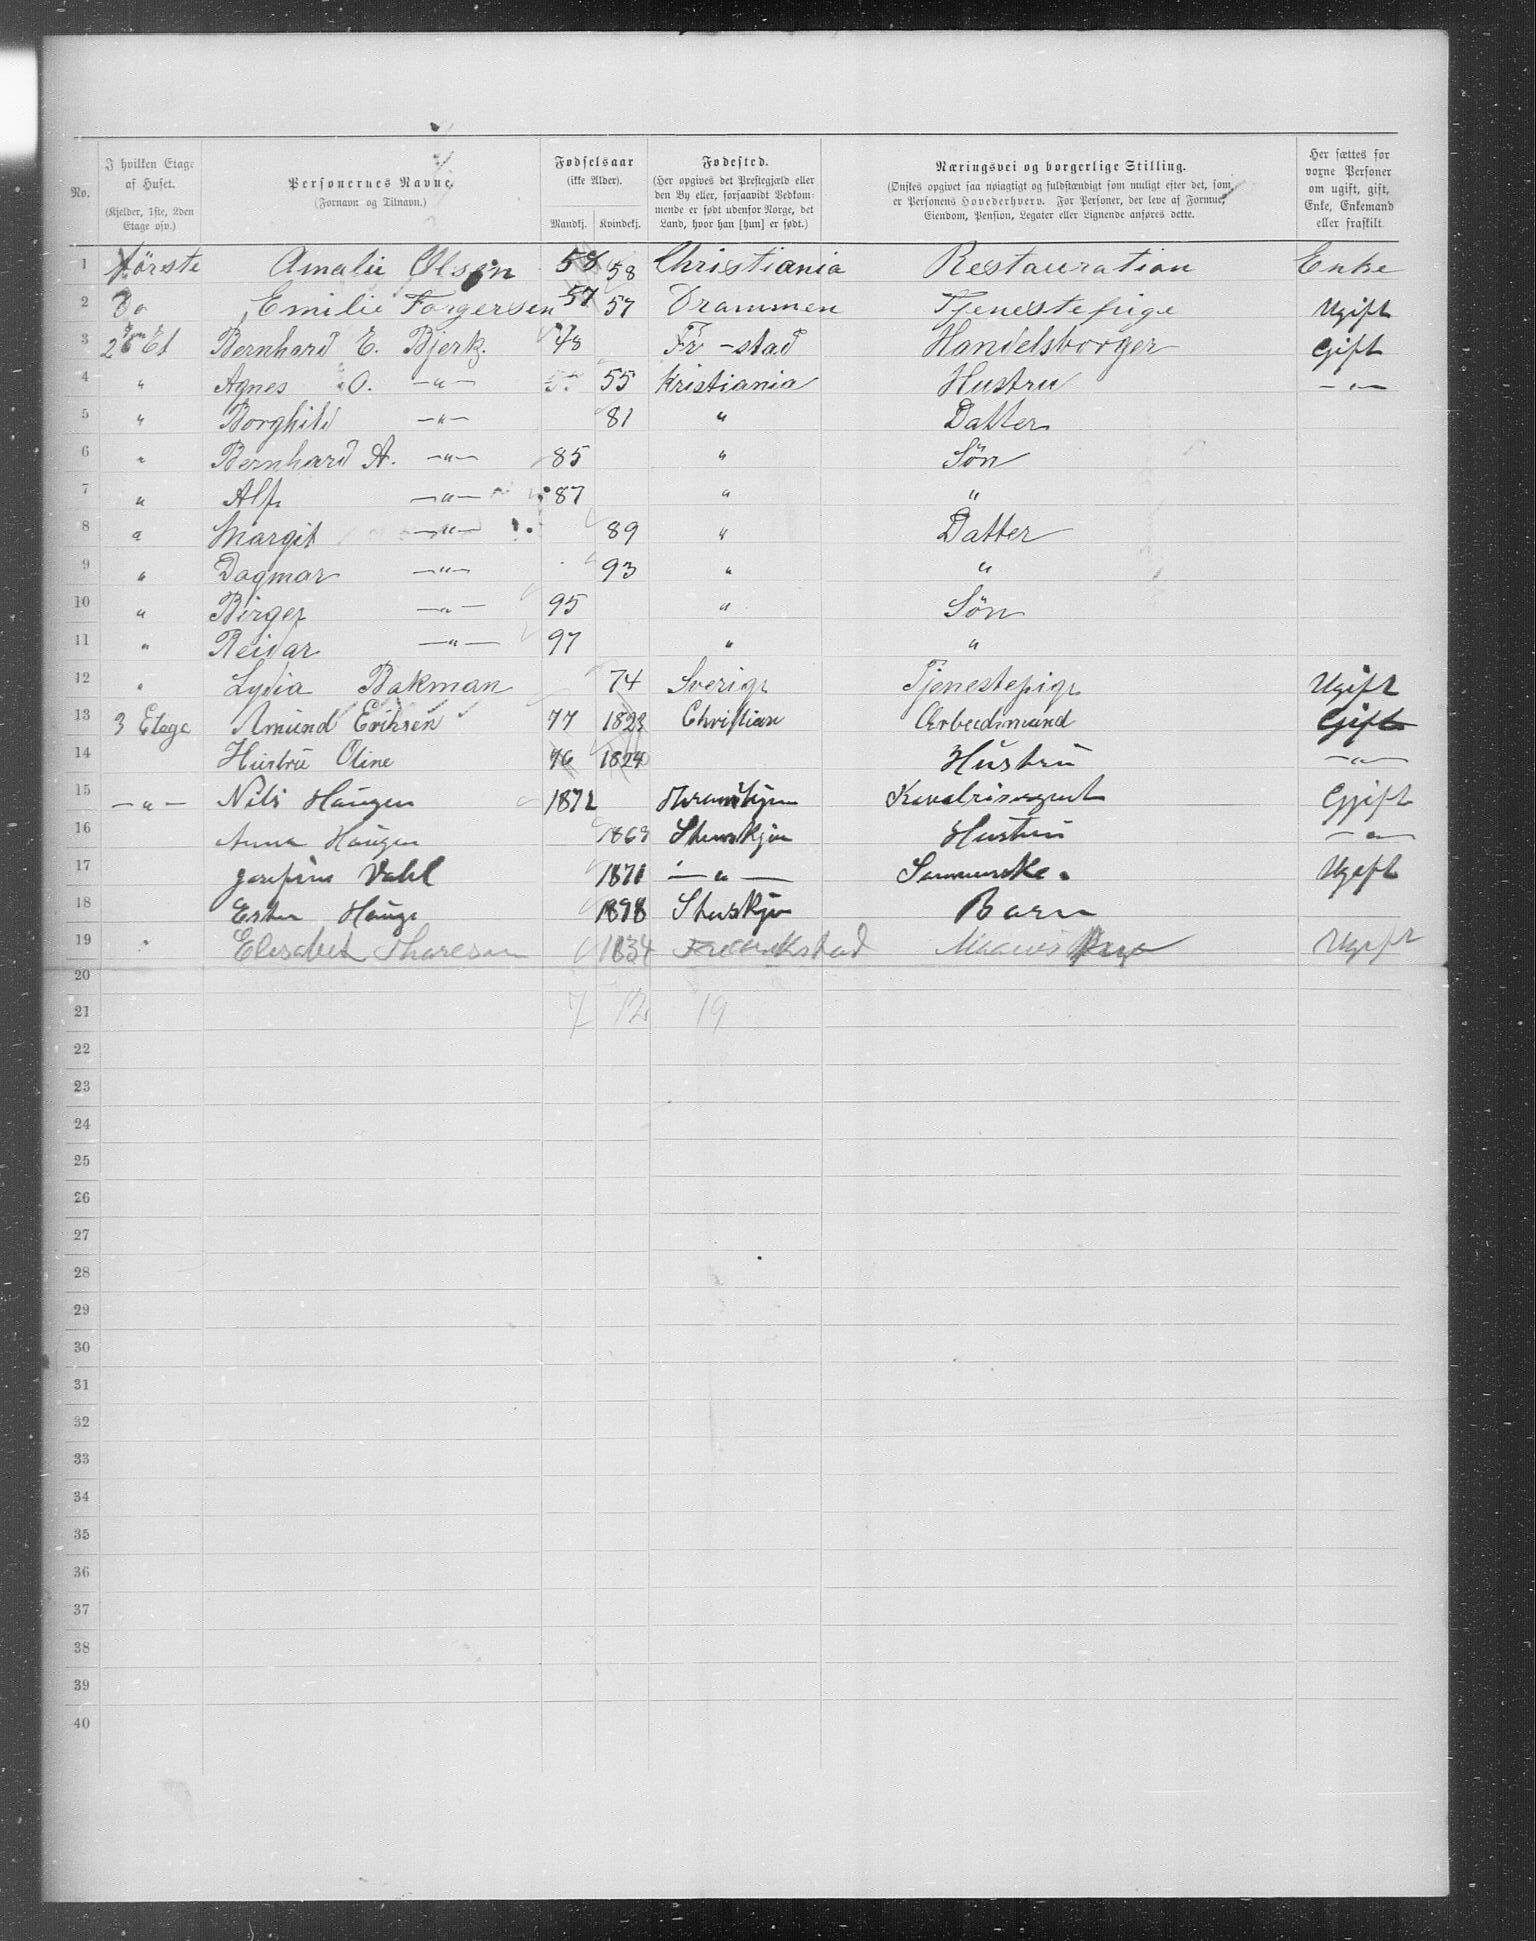 No.
I hvilken Etage af Huset. (Kjelder, 1ste, 2den Etage osv.)
Personernes Navne. (Fornavn og Tilnavn.)
Fødselsaar (ikke Alder). Mandkj. Kvindekj.
Fødested. (Her opgives det Prestegjæld eller den By eller, forsaavidt Vedkommende er født udenfor Norge, det Land, hvor han [hun] er født.)
Næringsvei og borgerlige Stilling. (Ønskes opgivet saa nøiagtigt og fuldstændigt som muligt efter det, som er Personens Hovederhverv. For Personer, der leve af Formue, Eiendom, Pension, Legater eller Lignende anføres dette.
Her sættes for voxne Personer om ugift, gift, Enke, Enkemand eller fraskilt.
1 Förste Amalie Olsen 58 58 Christiania Restauration Enke
2 Do Emilie Torgersen 57 57 Drammen Tjenestepige Ugift
3 2 Et Bernhard E. Bjerk. 48 Fr-stad Handelsborger Gift
4 " Agnes O. —"— 55 55 Kristiania Hustru —"—
5 " Borghild —"— 81 " Datter
6 " Bernhard A. —"— 85 " Sön
7 " Alf —"— 87 " "
8 " Margit —"— 89 " Datter
9 " Dagmar —"— 93 " "
10 " Birger —"— 95 " Sön
11 " Reidar —"— 97 " "
12 " Lydia Bakman 74 Sverige Tjenestepige Ugift
13 3 Etage Amund Eriksen 77 1823 Christian Arbeidsmand Gift
14 Hustru Oline 76 1824 Hustru —"—
15 —"— Nils Haugen 1872 Kavalrisergent Gjift
16 Anna Haugen 1863 Stenskjær Hustru —"—
17 Josefine Vahl 1871 —"— Ugift
18 Ester Hauge 1898 Stenskjær Barn
19 " Elisabet Thoresen 1834 Fredrikstad Ugift
20
21 7 12 19
22
23
24
25
26
27
28
29
30
31
32
33
34
35
36
37
38
39
40